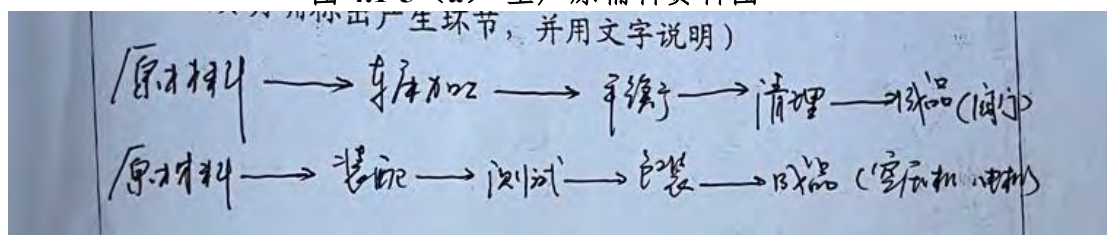 标出产生环节，并用文字说明）
原材料 → 车床加工 → 平衡 → 清理 → 成品
原材料 → 装配 → 测试 → 包装 → 成品 (空压机